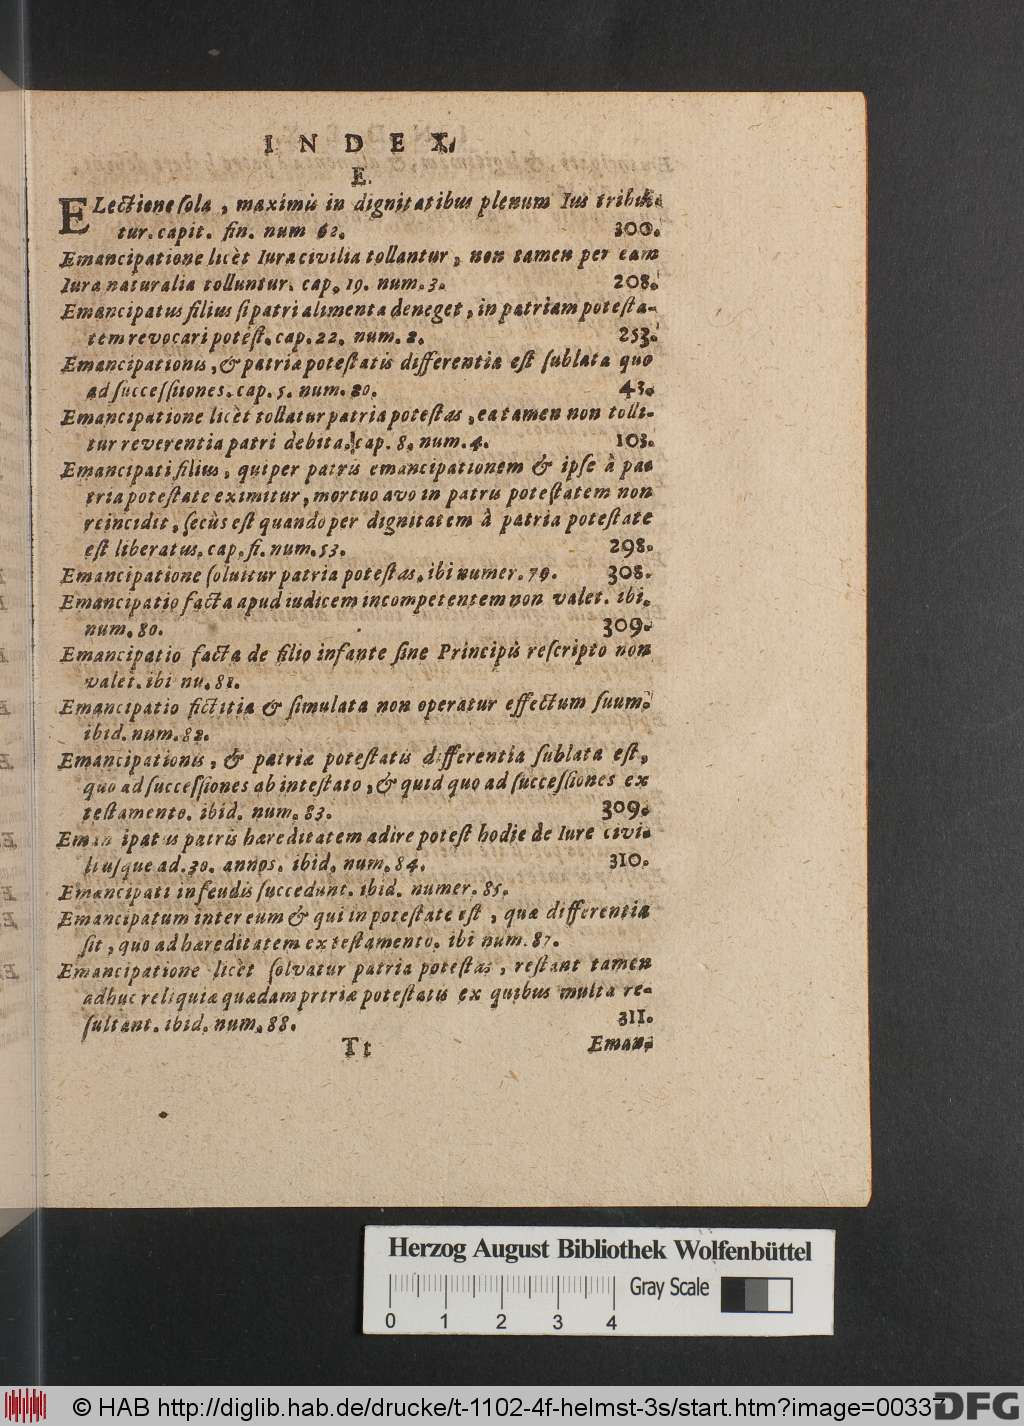 INDEX,
E.
ELectione sola, maximis in dignitatibus plenum Ius tribui-
tur. capit. fin. num 62. 300.
Emancipatione licèt Iura civilia tollantur, non tamen per eam
Iura naturalia tolluntur. cap. 19. num. 3. 208.
Emancipatus filius si patri alimenta deneget, in patriam potesta-
tem revocari potest. cap. 22. num. 2. 253.
Emancipationis, & patria potestatis differentia est sublata quo
ad successiiones. cap. 5. num. 20. 43.
Emancipatione licèt tollatur patria potestas, ea tamen non tolli-
tur reverentia patri debita. cap. 8. num. 4. 103.
Emancipati filius, qui per patris emancipationem & ipse à pa-
tria potestate eximitur, mortuo avo in patris potestatem non
reincidit, secùs est quando per dignitatem à patria potestate
est liberatus. cap. fi. num. 53. 298.
Emancipatione soluitur patria potestas. ibi numer. 79. 308.
Emancipatio facta apud iudicem incompetentem non valet. ibi.
num. 80. 309.
Emancipatio facta de filio infante sine Principis rescripto non
valet. ibi nu. 81.
Emancipatio fictitia & simulata non operatur effectum suum.
ibid. num. 82.
Emancipationis, & patriæ potestatis differentia sublata est,
quo ad successiones ab intestato, & quid quo ad successiones ex
testamento. ibid. num. 83. 309.
Eman ipatus patris hæreditatem adire potest hodie de Iure civi-
li usque ad. 30. annos. ibid. num. 84. 310.
Emancipati in feudis succedunt. ibid. numer. 85.
Emancipatum inter eum & qui in potestate est, quæ differentia
sit, quo ad hæreditatem ex testamento. ibi num. 87.
Emancipatione licèt solvatur patria potestas, restant tamen
adhuc reliquiæ quædam prtriæ potestatis ex quibus multa re-
sultant. ibid. num. 88. 311.
Tt Eman-
Herzog August Bibliothek Wolfenbüttel
Gray Scale
0 1 2 3 4
© HAB http://diglib.hab.de/drucke/t-1102-4f-helmst-3s/start.htm?image=00337
DFG